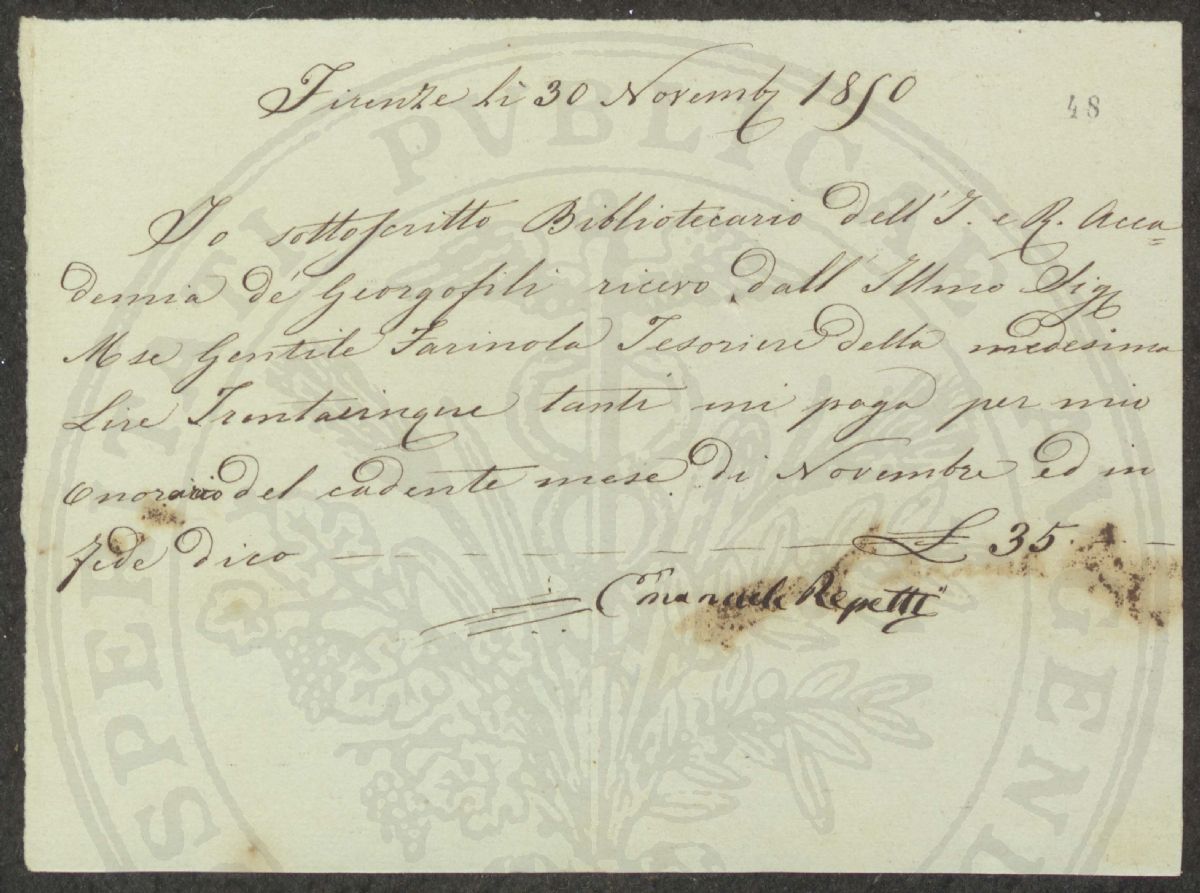 Firenze li 30 Novemb 1850
48
Io sottoscritto Bibliotecario dell'I. e R. Acca=
demia de' Georgofili ricevo dall' Illmo Sig
Mse Gentile Farinola Tesoriere della medesima
Lire Trentacinque tanti mi paga per mio
Onorario del cadente mese di Novembre ed in
fede dico — — — — — — — £ 35. — —
Emanuele Repetti
PVBLICAE
SPERITATI
AVGENDAE